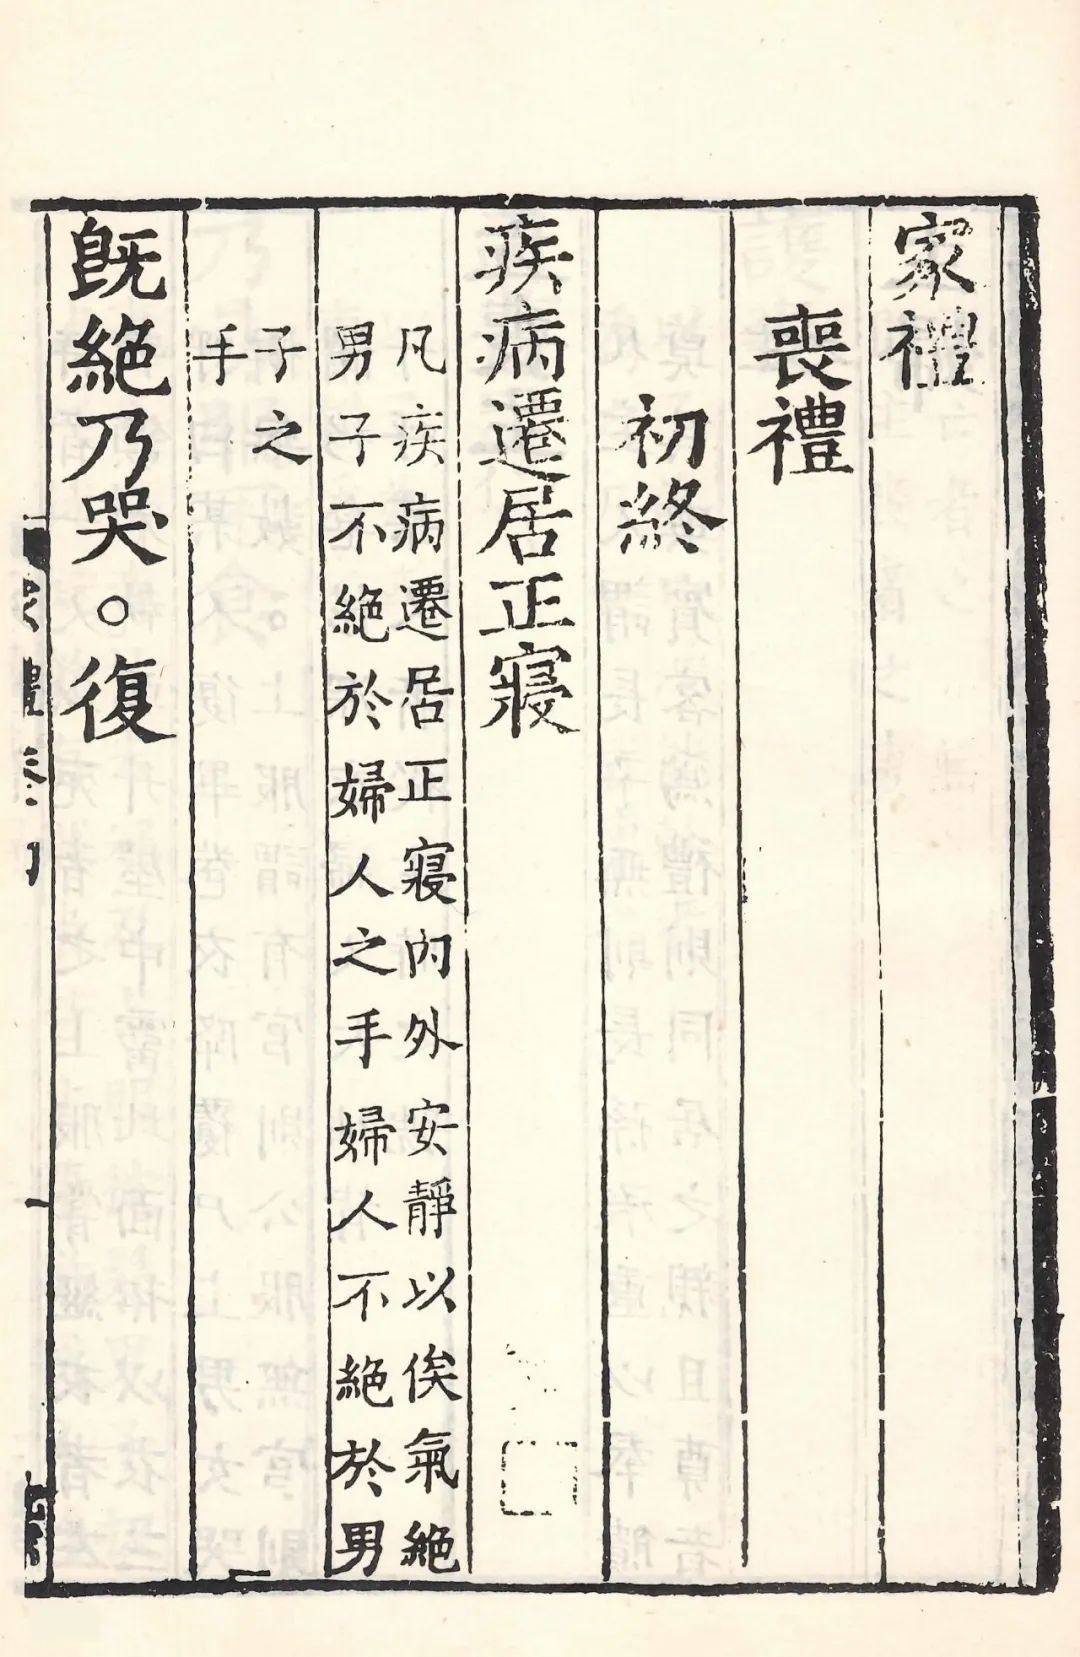 家禮
喪禮
初終
疾病遷居正寢
凡疾病遷居正寢內外安靜以俟氣絶
男子不絶於婦人之手婦人不絶於男
子之
手
既絶乃哭。復
家禮卷四